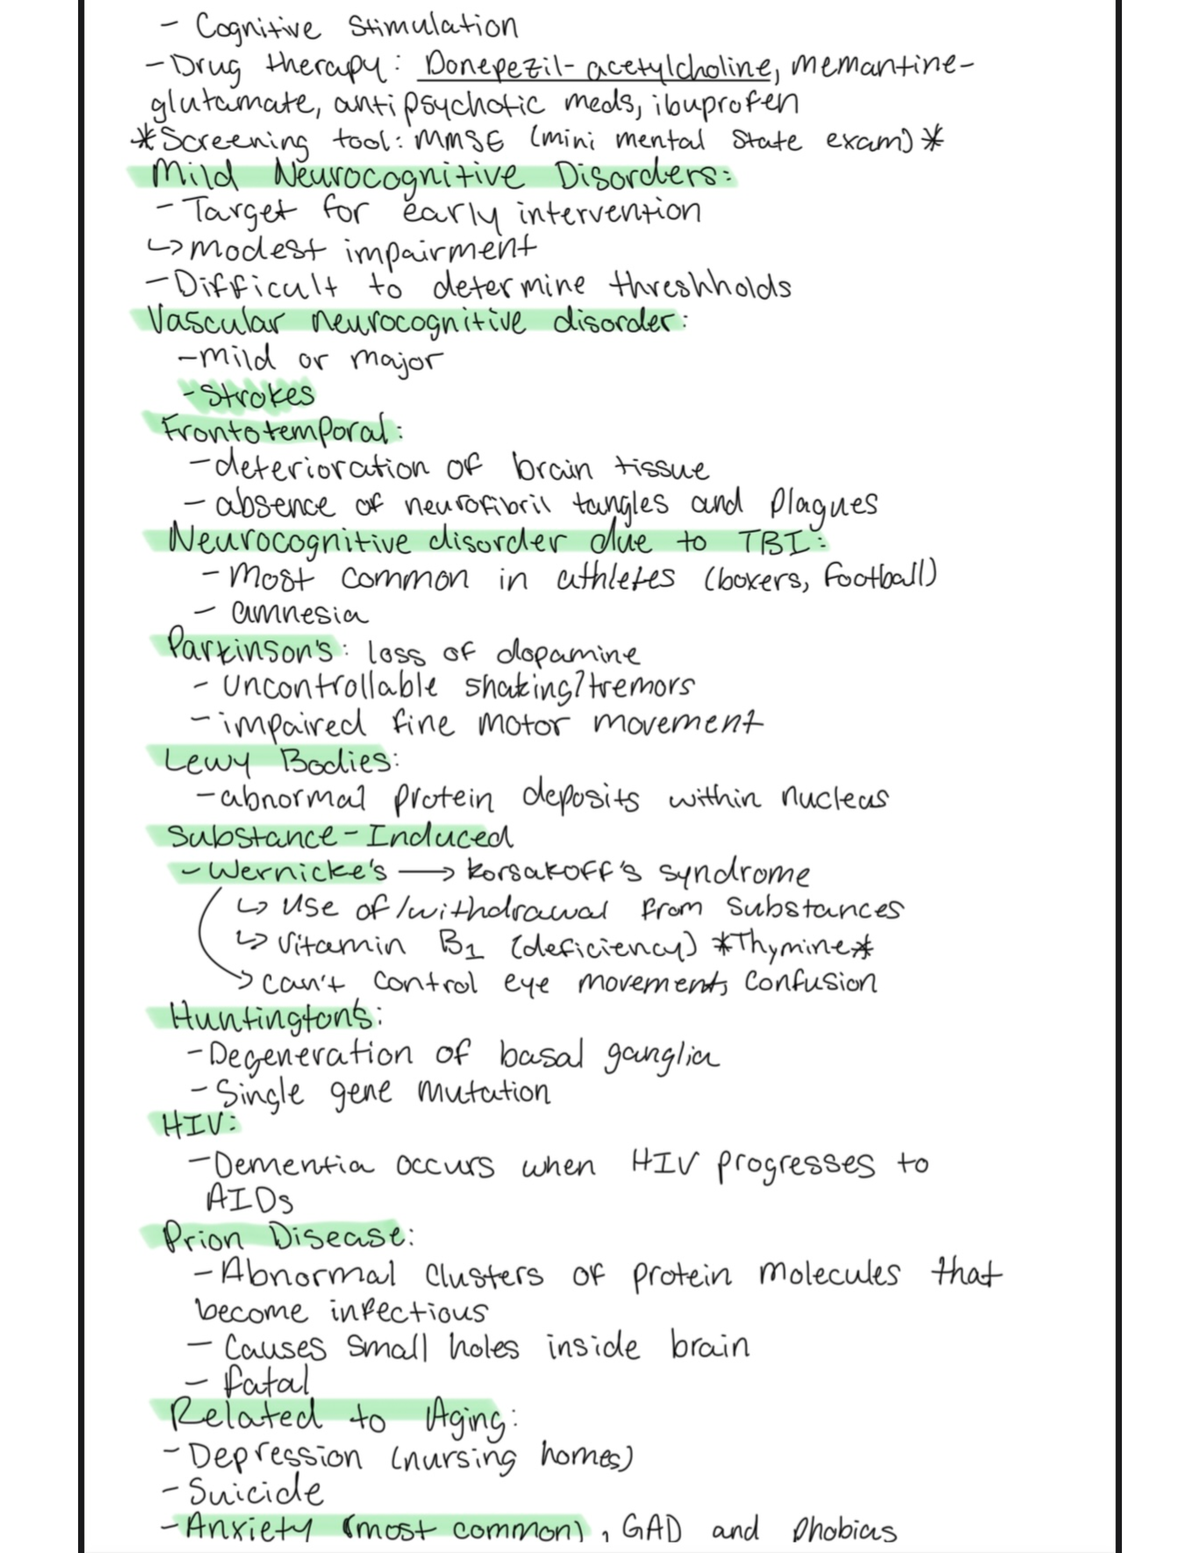 - Cognitive Stimulation
- Drug therapy: Donepezil- acetylcholine, memantine-
glutamate, antipsychotic meds, ibuprofen
*Screening tool: MMSE (mini mental State exam)*
Mild Neurocognitive Disorders:
- Target for early intervention
↳ modest impairment
- Difficult to determine threshholds
Vascular neurocognitive disorder:
- mild or major
- Strokes
Frontotemporal:
- deterioration of brain tissue
- absence of neurofibril tangles and Plagues
Neurocognitive disorder due to TBI:
- Most common in athletes (boxers, football)
- amnesia
Parkinson's: loss of dopamine
- Uncontrollable shaking/tremors
- impaired fine motor movement
Lewy Bodies:
- abnormal protein deposits within nucleus
Substance-Induced
- Wernicke's → Korsakoff's syndrome
↳ Use of/withdrawal from Substances
↳ Vitamin B1 (deficiency) *Thymine*
→ can't control eye movement, confusion
Huntington's:
- Degeneration of basal ganglia
- Single gene mutation
HIV:
- Dementia occurs when HIV progresses to
AIDs
Prion Disease:
- Abnormal clusters of protein molecules that
become infectious
- Causes small holes inside brain
- fatal
Related to Aging:
- Depression (nursing homes)
- Suicide
- Anxiety (most common), GAD and Phobias